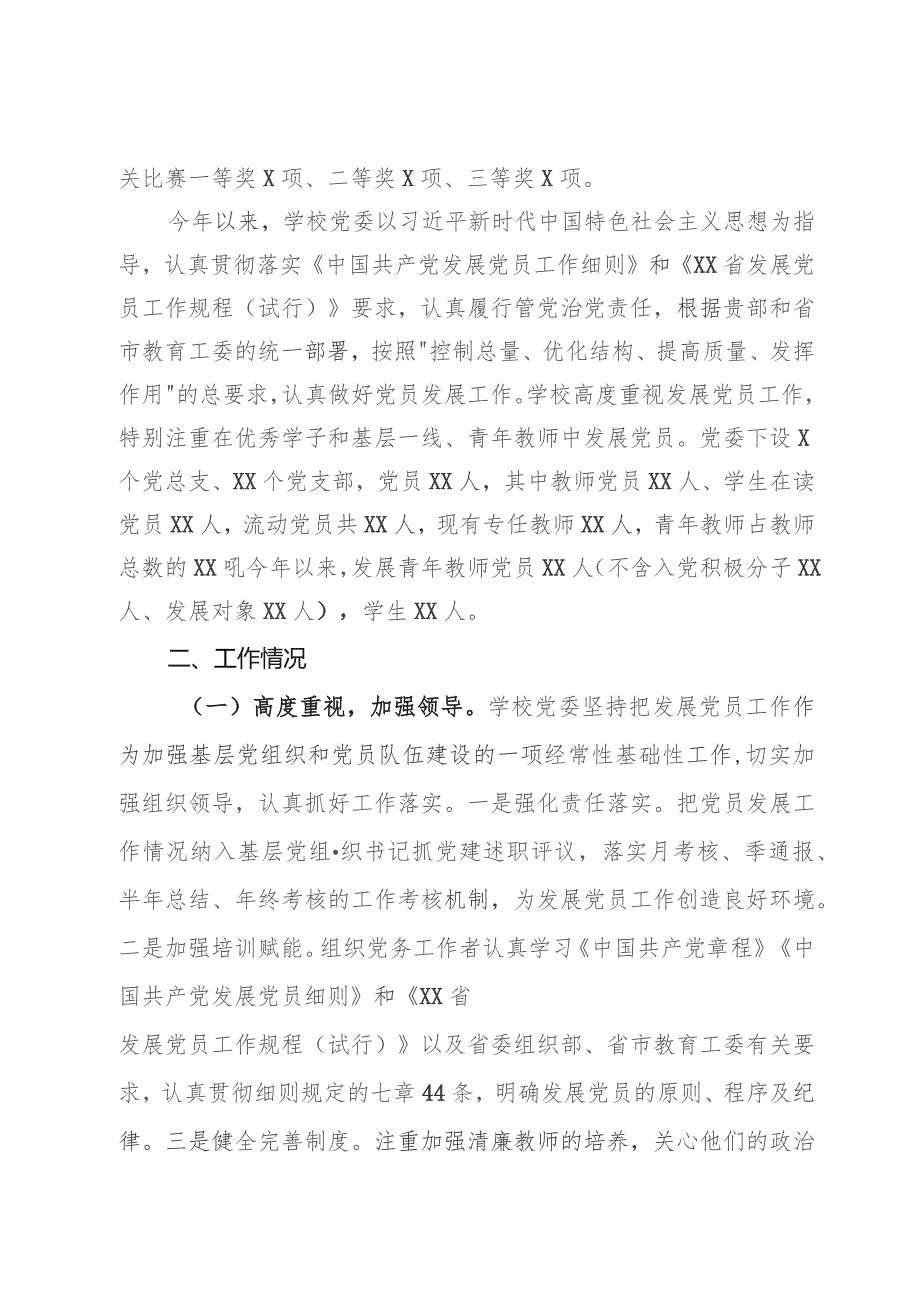 关比赛一等奖X项、二等奖X项、三等奖X项。
今年以来，学校党委以习近平新时代中国特色社会主义思想为指
导，认真贯彻落实《中国共产党发展党员工作细则》和《XX省发展党
员工作规程（试行）》要求，认真履行管党治党责任，根据贵部和省
市教育工委的统一部署，按照"控制总量、优化结构、提高质量、发挥
作用"的总要求，认真做好党员发展工作。学校高度重视发展党员工作，
特别注重在优秀学子和基层一线、青年教师中发展党员。党委下设X
个党总支、XX个党支部，党员XX人，其中教师党员XX人、学生在读
党员XX人，流动党员共XX人，现有专任教师XX人，青年教师占教师
总数的XX吼今年以来，发展青年教师党员XX人（不含入党积极分子XX
人、发展对象XX人），学生XX人。
二、工作情况
（一）高度重视，加强领导。学校党委坚持把发展党员工作作
为加强基层党组织和党员队伍建设的一项经常性基础性工作，切实加
强组织领导，认真抓好工作落实。一是强化责任落实。把党员发展工
作情况纳入基层党组•织书记抓党建述职评议，落实月考核、季通报、
半年总结、年终考核的工作考核机制，为发展党员工作创造良好环境。
二是加强培训赋能。组织党务工作者认真学习《中国共产党章程》《中
国共产党发展党员细则》和《XX省
发展党员工作规程（试行）》以及省委组织部、省市教育工委有关要
求，认真贯彻细则规定的七章44条，明确发展党员的原则、程序及纪
律。三是健全完善制度。注重加强清廉教师的培养，关心他们的政治